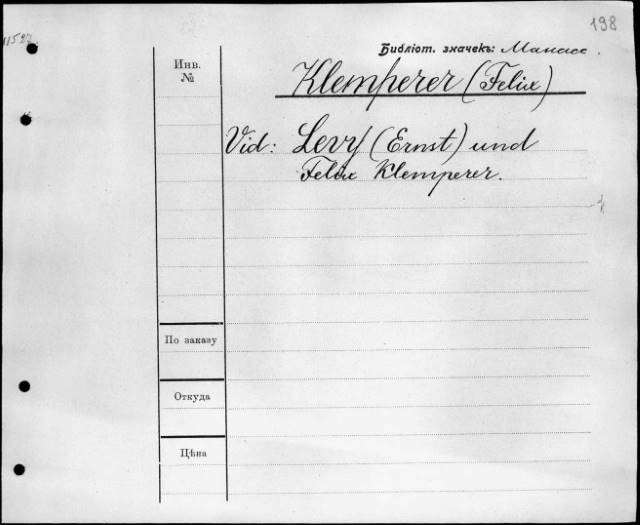 198
Библіот. значекъ: Манасс.
Инв.
№
Klemperer (Felix)
Vid: Levy (Ernst) und
Felix Klemperer.
По заказу
Откуда
Цѣна